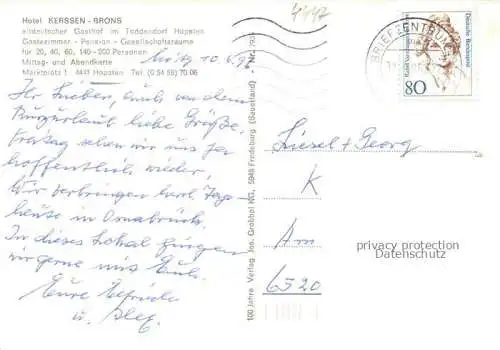 Hotel KERSSEN - BRONS
altdeutscher Gasthof im Töddendorf Hopsten
Gästezimmer - Pension - Gesellschaftsräume
für 20, 40, 60, 140 - 200 Personen
Mittag- und Abendkarte
Marktplatz 1 4413 Hopsten Tel. (0 54 58) 70 06
Ihr Lieben, auch von dem
Kurzurlaub liebe Grüße.
Freitag sehen wir uns ja
hoffentlich wieder,
Wir verbringen herrl. Tage
heute in Osnabrück.
In dieses Lokal gingen
wir gerne mit Euch.
Eure
u. Alex.
100 Jahre Verlag Jos. Grobbel KG, 5948 Fredeburg (Sauerland)
BRIEFZENTRUM
Deutsche Bundespost
80
Liesel + Georg
K
Am
6520
privacy protection
Datenschutz